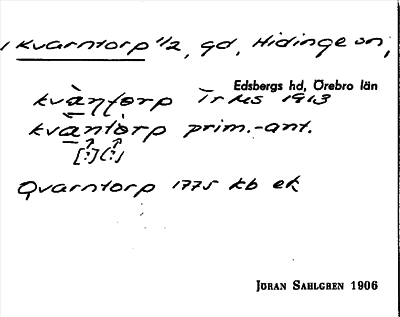 1 Kvarntorp 1/2, gd, Hidinge sn,
Edsbergs hd, Örebro län
kvàṇṭorp Tr MS 1913
kvantòrp prim.-ant.
[:] (:)
Qvarntorp 1775 kb ek
JÖRAN SAHLGREN 1906